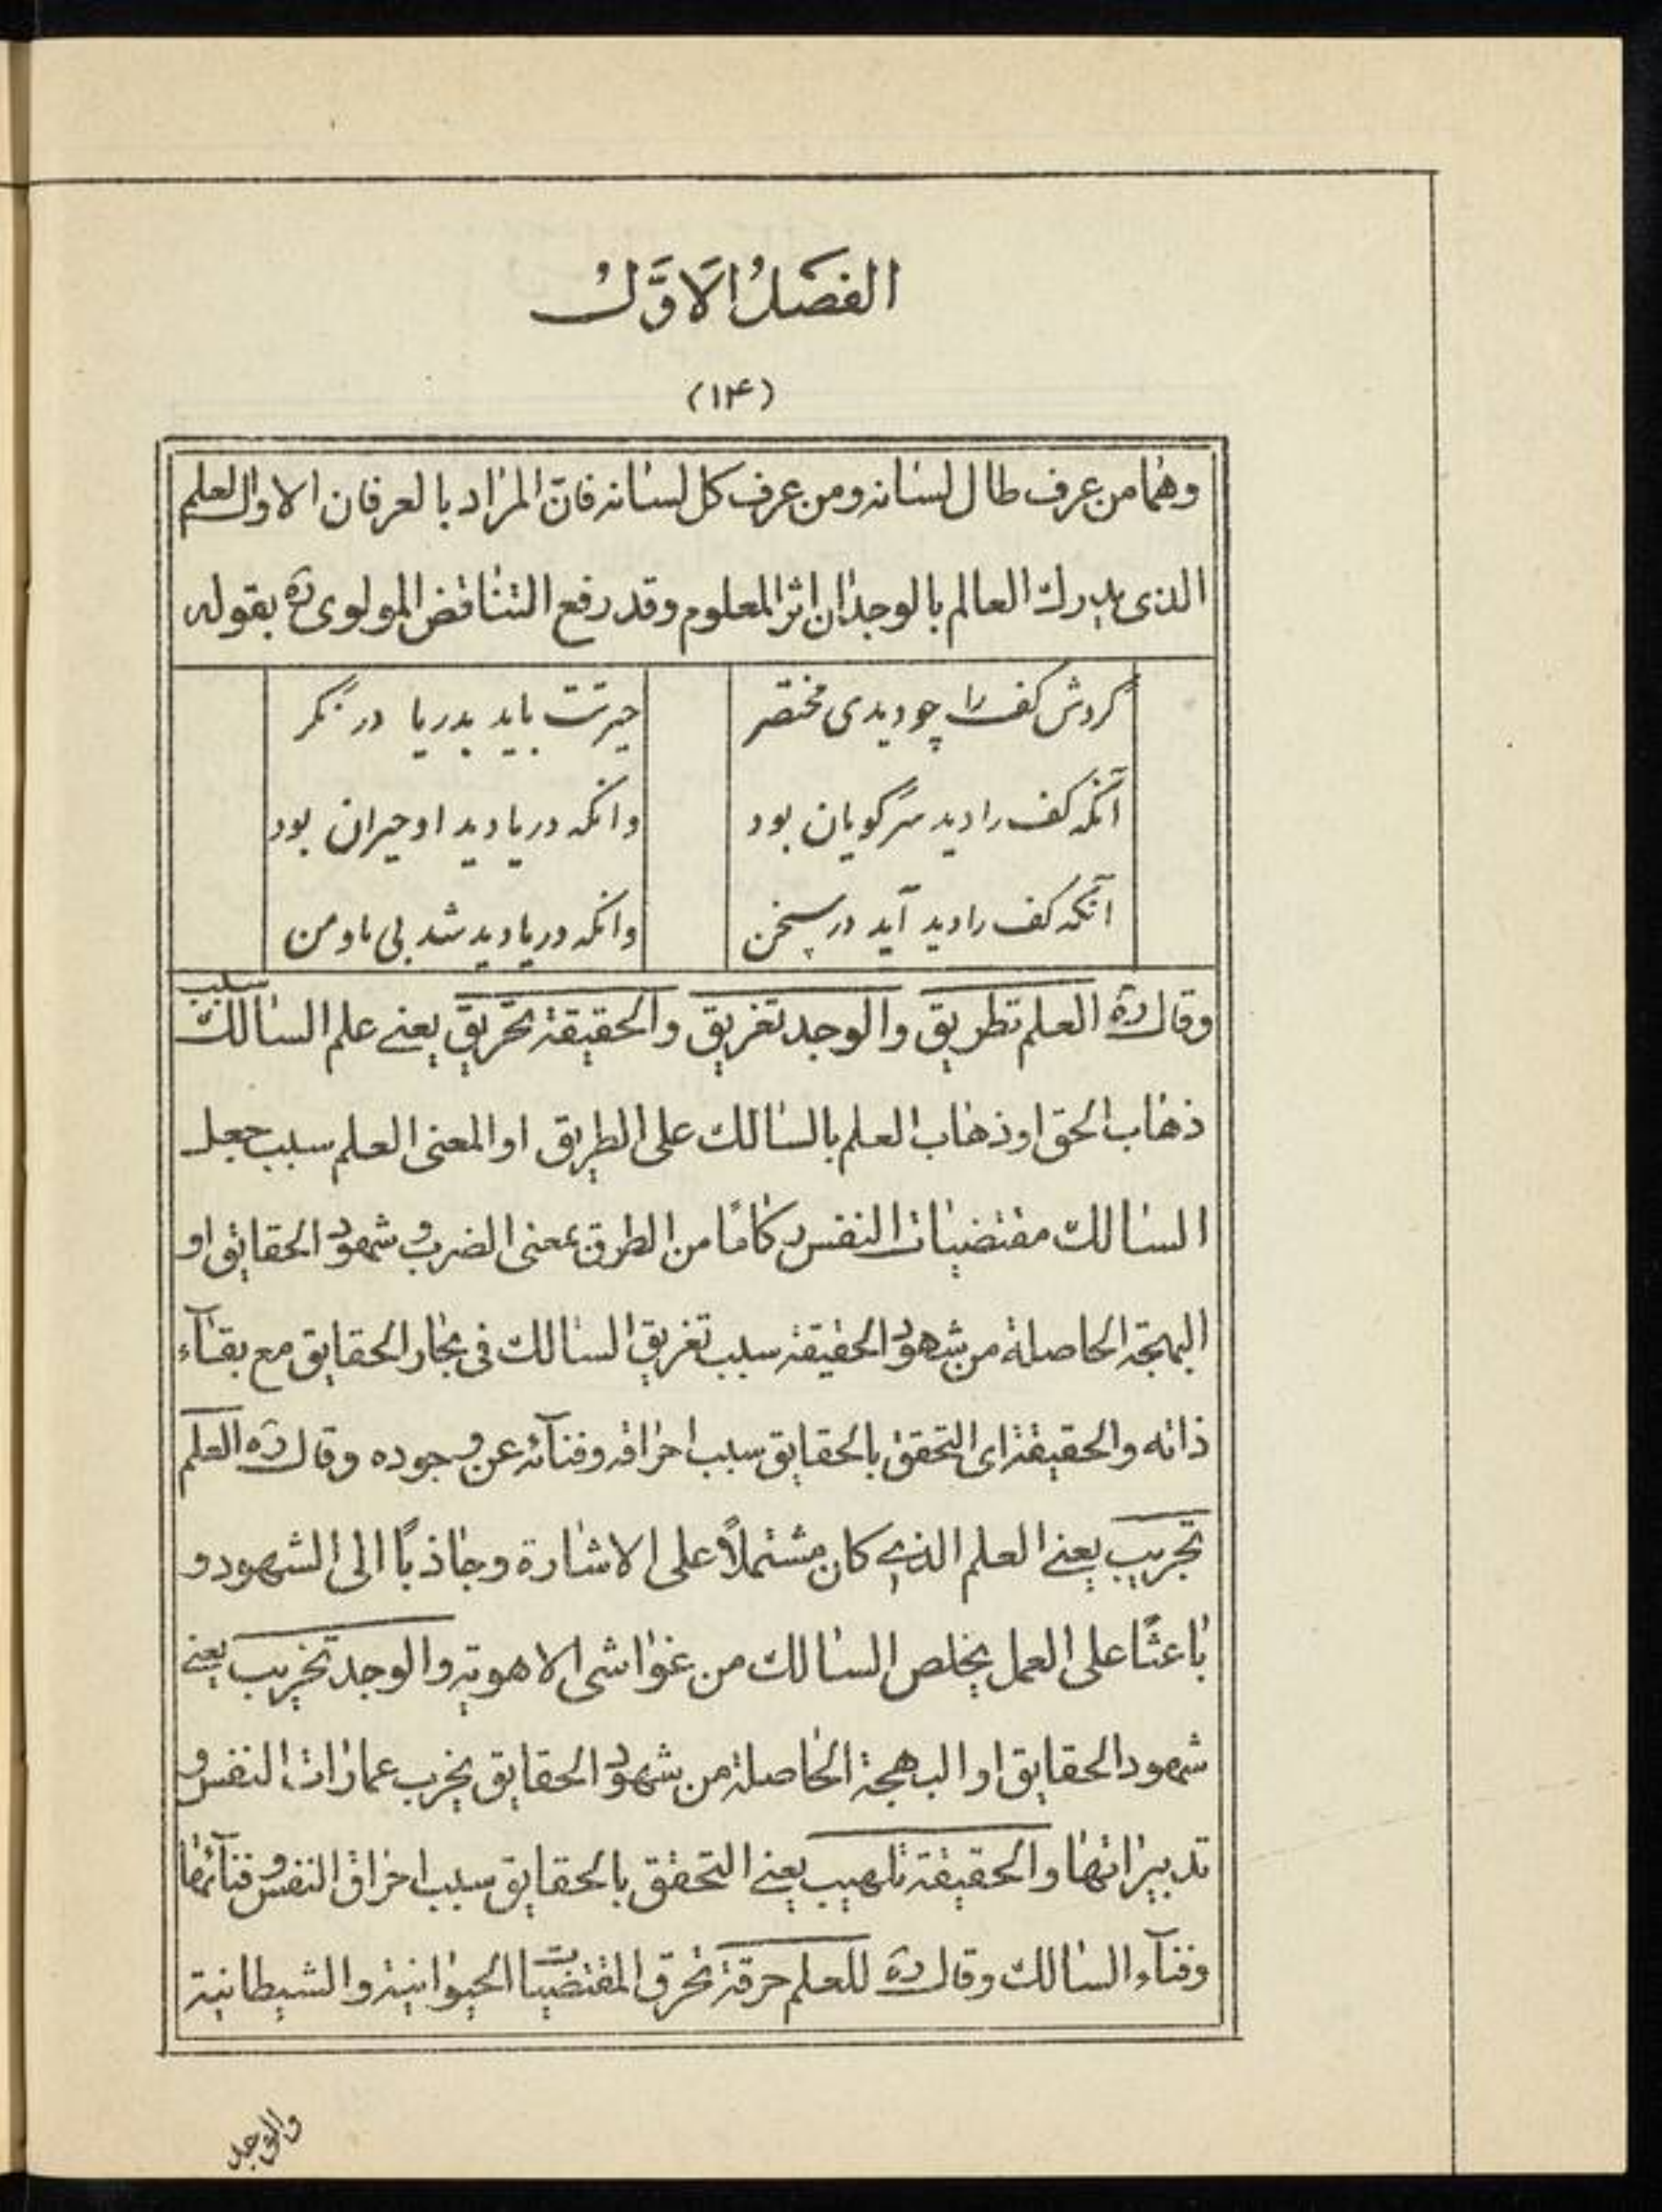 الفصَلُ الاَوَّلُ
(۱۴)
وهما من عرف طال لسانه ومن عرف كل لسانه فان المراد بالعرفان الاول العلم
الذى يدرك العالم بالوجدان اثر المعلوم وقد رفع التناقض المولوى ره بقوله
گردش كف را چو ديدى مختصر حيرتت بايد بدريا در نگر
آنكه كف را ديد سرگويان بود وانكه دريا ديد او حيران بود
آنكه كف را ديد آيد در سخن وانكه دريا ديد شد بى ما و من
وقال ره العلم تطريق والوجد تغريق والحقيقة تحريق يعنے علم السالك سبب
ذهاب الحق او ذهاب العلم بالسالك على الطريق او المعنى العلم سبب جعل
السالك مقتضيات النفس ركاما من الطرق بمعنى الضرب و شهود الحقايق او
البهجة الحاصلة من شهود الحقيقة سبب تغريق السالك فى بحار الحقايق مع بقآء
ذاته والحقيقة اى التحقق بالحقايق سبب احراقه وفنآئه عن وجوده وقال ره العلم
تجريب يعنے العلم الذى كان مشتملاً على الاشارة وجاذباً الى الشهود و
باعثًا على العمل يخلص السالك من غواشى الاهوية والوجد تخريب يعنے
شهود الحقايق او البهجة الحاصلة من شهود الحقايق يخرب عمارات النفس و
تدبيراتها والحقيقة تلهيب يعنے التحقق بالحقايق سبب احراق النفس و فنآئها
وفنآء السالك وقال ره للعلم حرقة تحرق المقتضيات الحيوانية والشيطانية
وللوجد